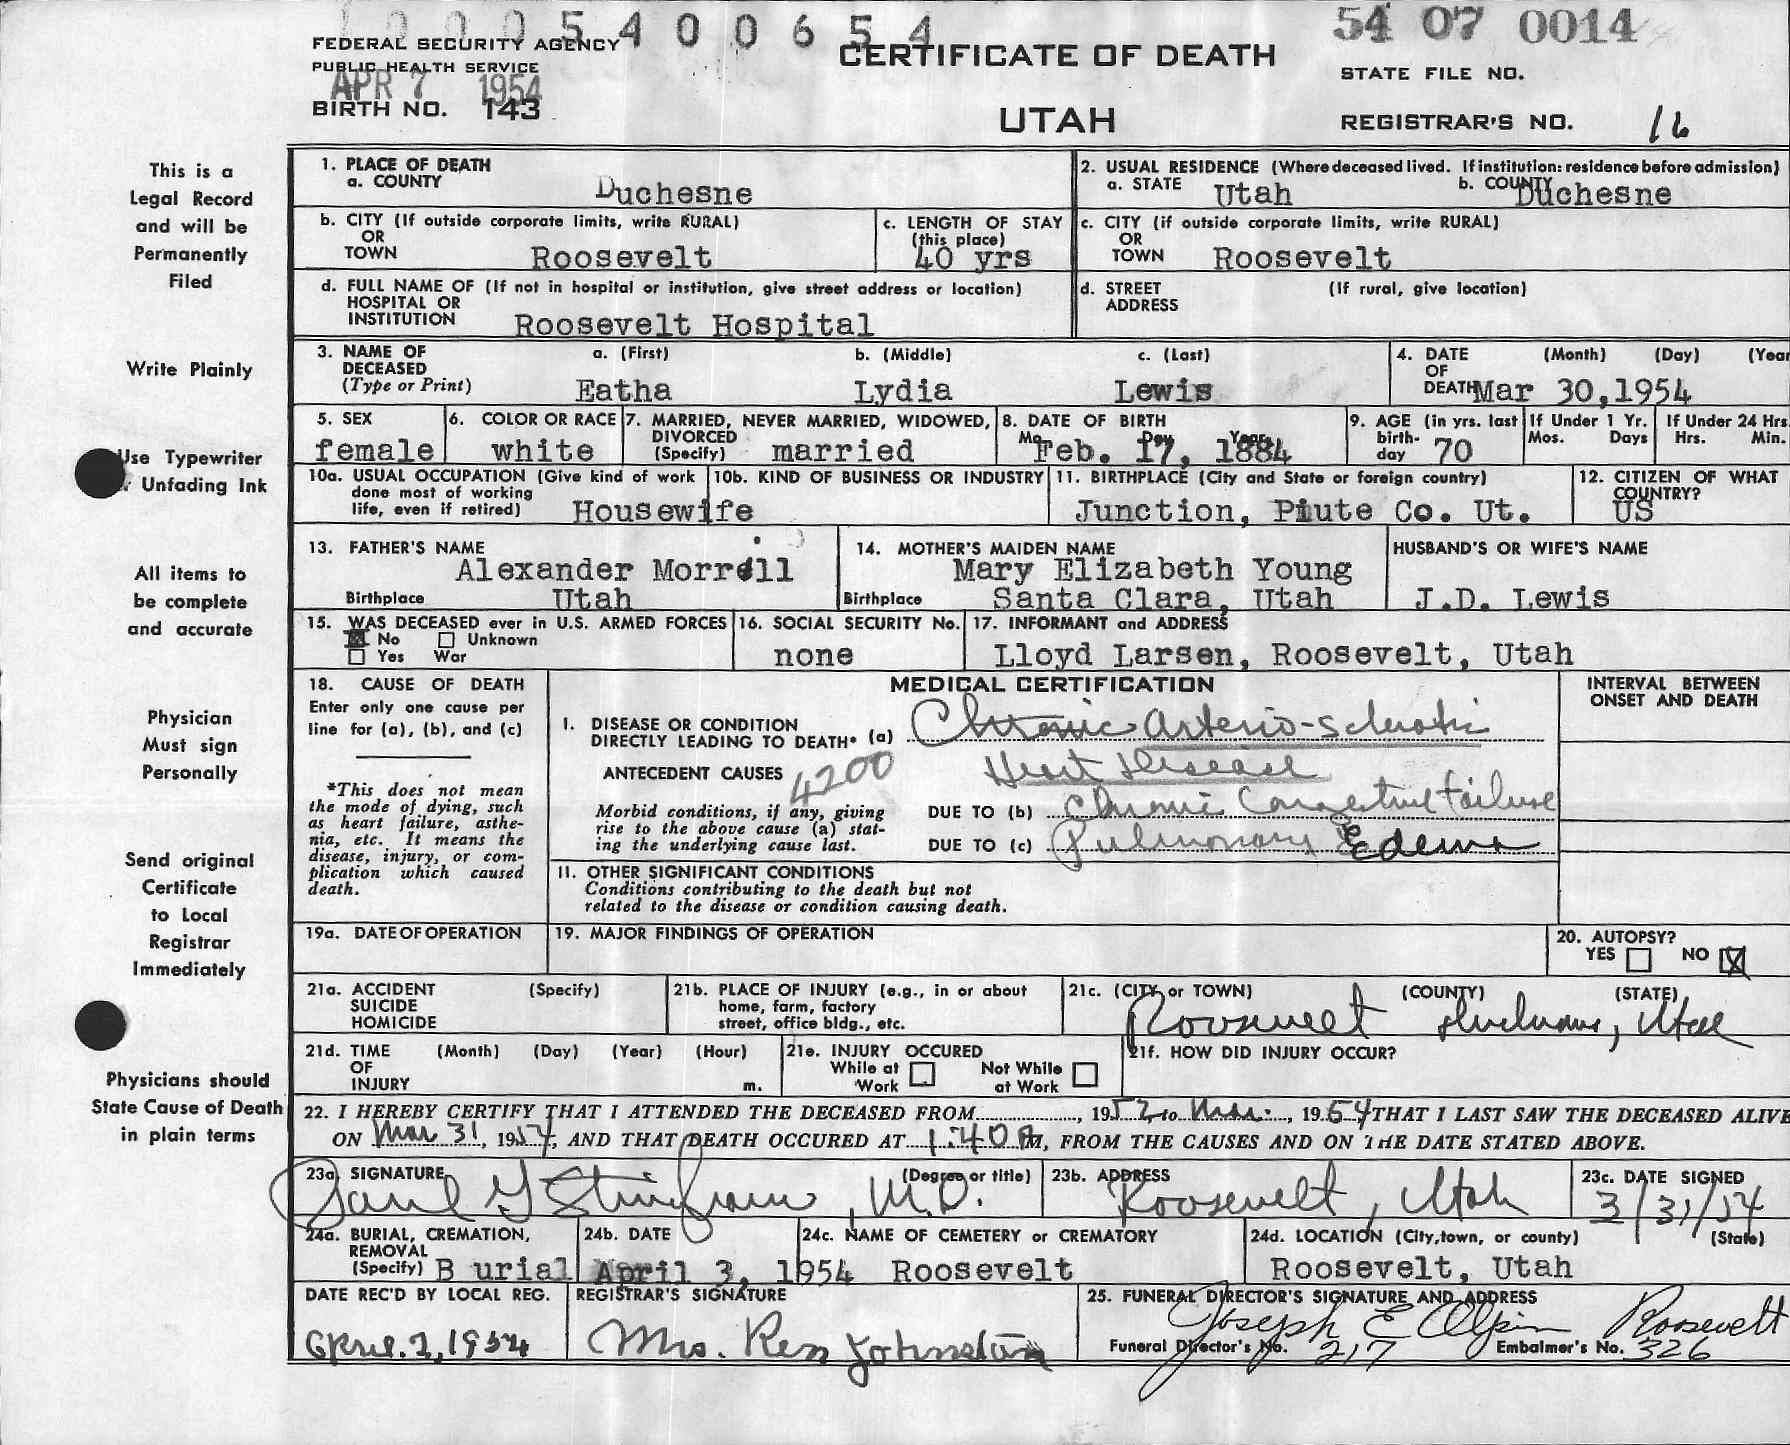 1000540 0654
54 07 0014
FEDERAL SECURITY AGENCY
PUBLIC HEALTH SERVICE
APR 7 1954
BIRTH NO. 143
CERTIFICATE OF DEATH
UTAH
STATE FILE NO.
REGISTRAR'S NO. 16
This is a
Legal Record
and will be
Permanently
Filed
Write Plainly
Use Typewriter
Unfading Ink
All items to
be complete
and accurate
Physician
Must sign
Personally
Send original
Certificate
to Local
Registrar
Immediately
Physicians should
State Cause of Death
in plain terms
1. PLACE OF DEATH
a. COUNTY Duchesne
2. USUAL RESIDENCE (Where deceased lived. If institution: residence before admission)
a. STATE Utah b. COUNTY Duchesne
b. CITY (If outside corporate limits, write RURAL)
OR
TOWN Roosevelt
c. LENGTH OF STAY
(this place)
40 yrs
c. CITY (if outside corporate limits, write RURAL)
OR
TOWN Roosevelt
d. FULL NAME OF (If not in hospital or institution, give street address or location)
HOSPITAL OR
INSTITUTION Roosevelt Hospital
d. STREET (If rural, give location)
ADDRESS
3. NAME OF a. (First) b. (Middle) c. (Last)
DECEASED
(Type or Print) Eatha Lydia Lewis
4. DATE (Month) (Day) (Year
OF
DEATH Mar 30, 1954
5. SEX
female
6. COLOR OR RACE
white
7. MARRIED, NEVER MARRIED, WIDOWED,
DIVORCED
(Specify) married
8. DATE OF BIRTH
Mo. Day Year
Feb. 17, 1884
9. AGE (in yrs. last
birth-
day 70
If Under 1 Yr.
Mos. Days
If Under 24 Hrs.
Hrs. Min.
10a. USUAL OCCUPATION (Give kind of work
done most of working
life, even if retired) Housewife
10b. KIND OF BUSINESS OR INDUSTRY
11. BIRTHPLACE (City and State or foreign country)
Junction, Piute Co. Ut.
12. CITIZEN OF WHAT
COUNTRY?
US
13. FATHER'S NAME
Alexander Morrill
Birthplace Utah
14. MOTHER'S MAIDEN NAME
Mary Elizabeth Young
Birthplace Santa Clara, Utah
HUSBAND'S OR WIFE'S NAME
J.D. Lewis
15. WAS DECEASED ever in U.S. ARMED FORCES
No Unknown
Yes War
16. SOCIAL SECURITY No.
none
17. INFORMANT and ADDRESS
Lloyd Larsen, Roosevelt, Utah
18. CAUSE OF DEATH
Enter only one cause per
line for (a), (b), and (c)
*This does not mean
the mode of dying, such
as heart failure, asthe-
nia, etc. It means the
disease, injury, or com-
plication which caused
death.
MEDICAL CERTIFICATION
INTERVAL BETWEEN
ONSET AND DEATH
I. DISEASE OR CONDITION
DIRECTLY LEADING TO DEATH* (a) Chronic arterio-sclerotic
ANTECEDENT CAUSES 4200 Heart Disease
Morbid conditions, if any, giving
rise to the above cause (a) stat-
ing the underlying cause last.
DUE TO (b) Chronic Congestive failure
DUE TO (c) Pulmonary Edema
11. OTHER SIGNIFICANT CONDITIONS
Conditions contributing to the death but not
related to the disease or condition causing death.
19a. DATE OF OPERATION
19. MAJOR FINDINGS OF OPERATION
20. AUTOPSY?
YES NO X
21a. ACCIDENT (Specify)
SUICIDE
HOMICIDE
21b. PLACE OF INJURY (e.g., in or about
home, farm, factory
street, office bldg., etc.
21c. (CITY or TOWN) (COUNTY) (STATE)
Roosevelt Duchesne, Utah
21d. TIME (Month) (Day) (Year) (Hour)
OF
INJURY m.
21e. INJURY OCCURED
While at Work Not While at Work
21f. HOW DID INJURY OCCUR?
22. I HEREBY CERTIFY THAT I ATTENDED THE DECEASED FROM , 1952 to Mar. , 1954 THAT I LAST SAW THE DECEASED ALIVE
ON Mar 31, 1954, AND THAT DEATH OCCURED AT 1:40 P M, FROM THE CAUSES AND ON THE DATE STATED ABOVE.
23a. SIGNATURE (Degree or title)
Paul G Stringham, M.D.
23b. ADDRESS
Roosevelt, Utah
23c. DATE SIGNED
3/31/54
24a. BURIAL, CREMATION,
REMOVAL
(Specify) B urial
24b. DATE
April 3, 1954
24c. NAME OF CEMETERY or CREMATORY
Roosevelt
24d. LOCATION (City, town, or county) (State)
Roosevelt, Utah
DATE REC'D BY LOCAL REG.
April. 2, 1954
REGISTRAR'S SIGNATURE
Mrs. Ren Johnston
25. FUNERAL DIRECTOR'S SIGNATURE AND ADDRESS
Joseph E Olpin Roosevelt
Funeral Director's No. 217 Embalmer's No. 326